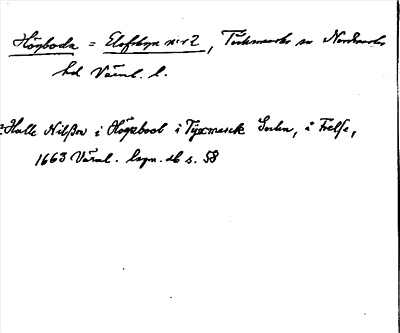 Högboda = Elofsbyn nr 2, Töcksmarks sn Nordmarks
hd Värml. l.
Halle Nilsson i Högebool i Työxmarck Sochn, å Frelse,
1663 Värml. lagn. db s. 58